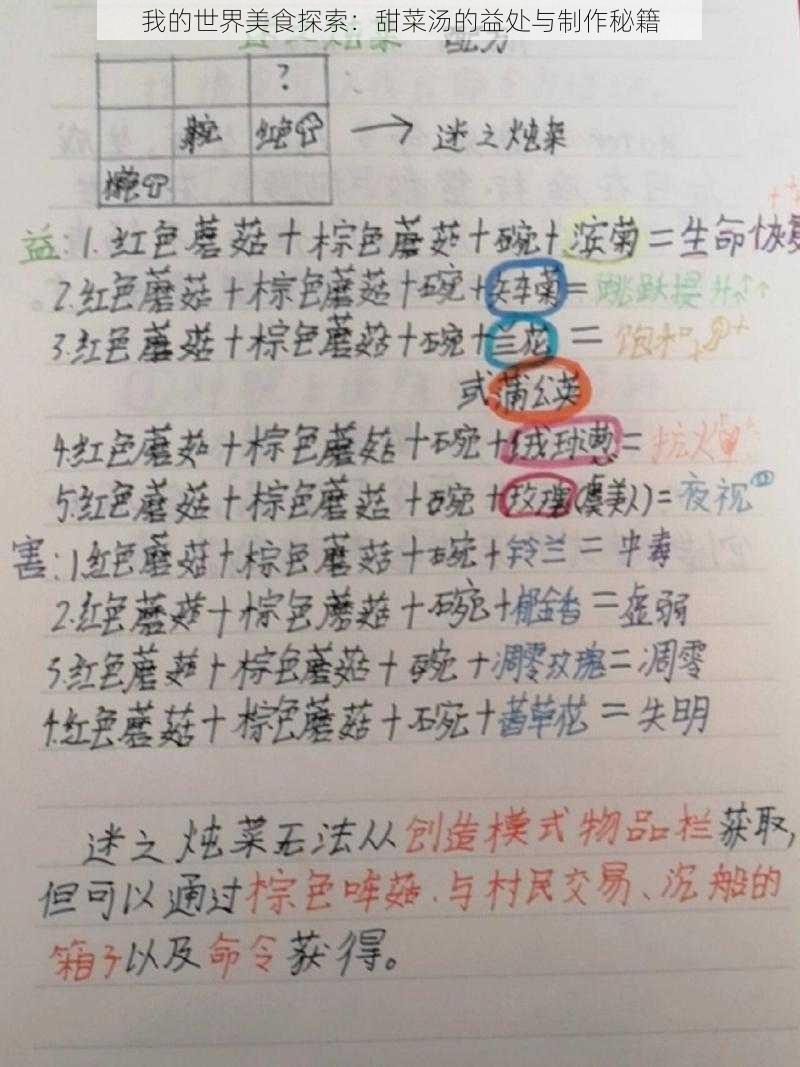 我的世界美食探索：甜菜汤的益处与制作秘籍
?
碗 红色 → 迷之炖菜
益:1.红色蘑菇+棕色蘑菇+碗+滨菊=生命恢复
2.红色蘑菇+棕色蘑菇+碗+矢车菊=跳跃提升↑↑
3.红色蘑菇+棕色蘑菇+碗+兰花=饱和
或蒲公英
4.红色蘑菇+棕色蘑菇+碗+绒球葱=抗火
5.红色蘑菇+棕色蘑菇+碗+玫瑰(虞美人)=夜视
害:1.红色蘑菇+棕色蘑菇+碗+铃兰=中毒
2.红色蘑菇+棕色蘑菇+碗+郁金香=虚弱
3.红色蘑菇+棕色蘑菇+碗+凋零玫瑰=凋零
4.红色蘑菇+棕色蘑菇+碗+茜草花=失明
迷之炖菜无法从创造模式物品栏获取,
但可以通过棕色哞菇、与村民交易、沉船的
箱子以及命令获得。